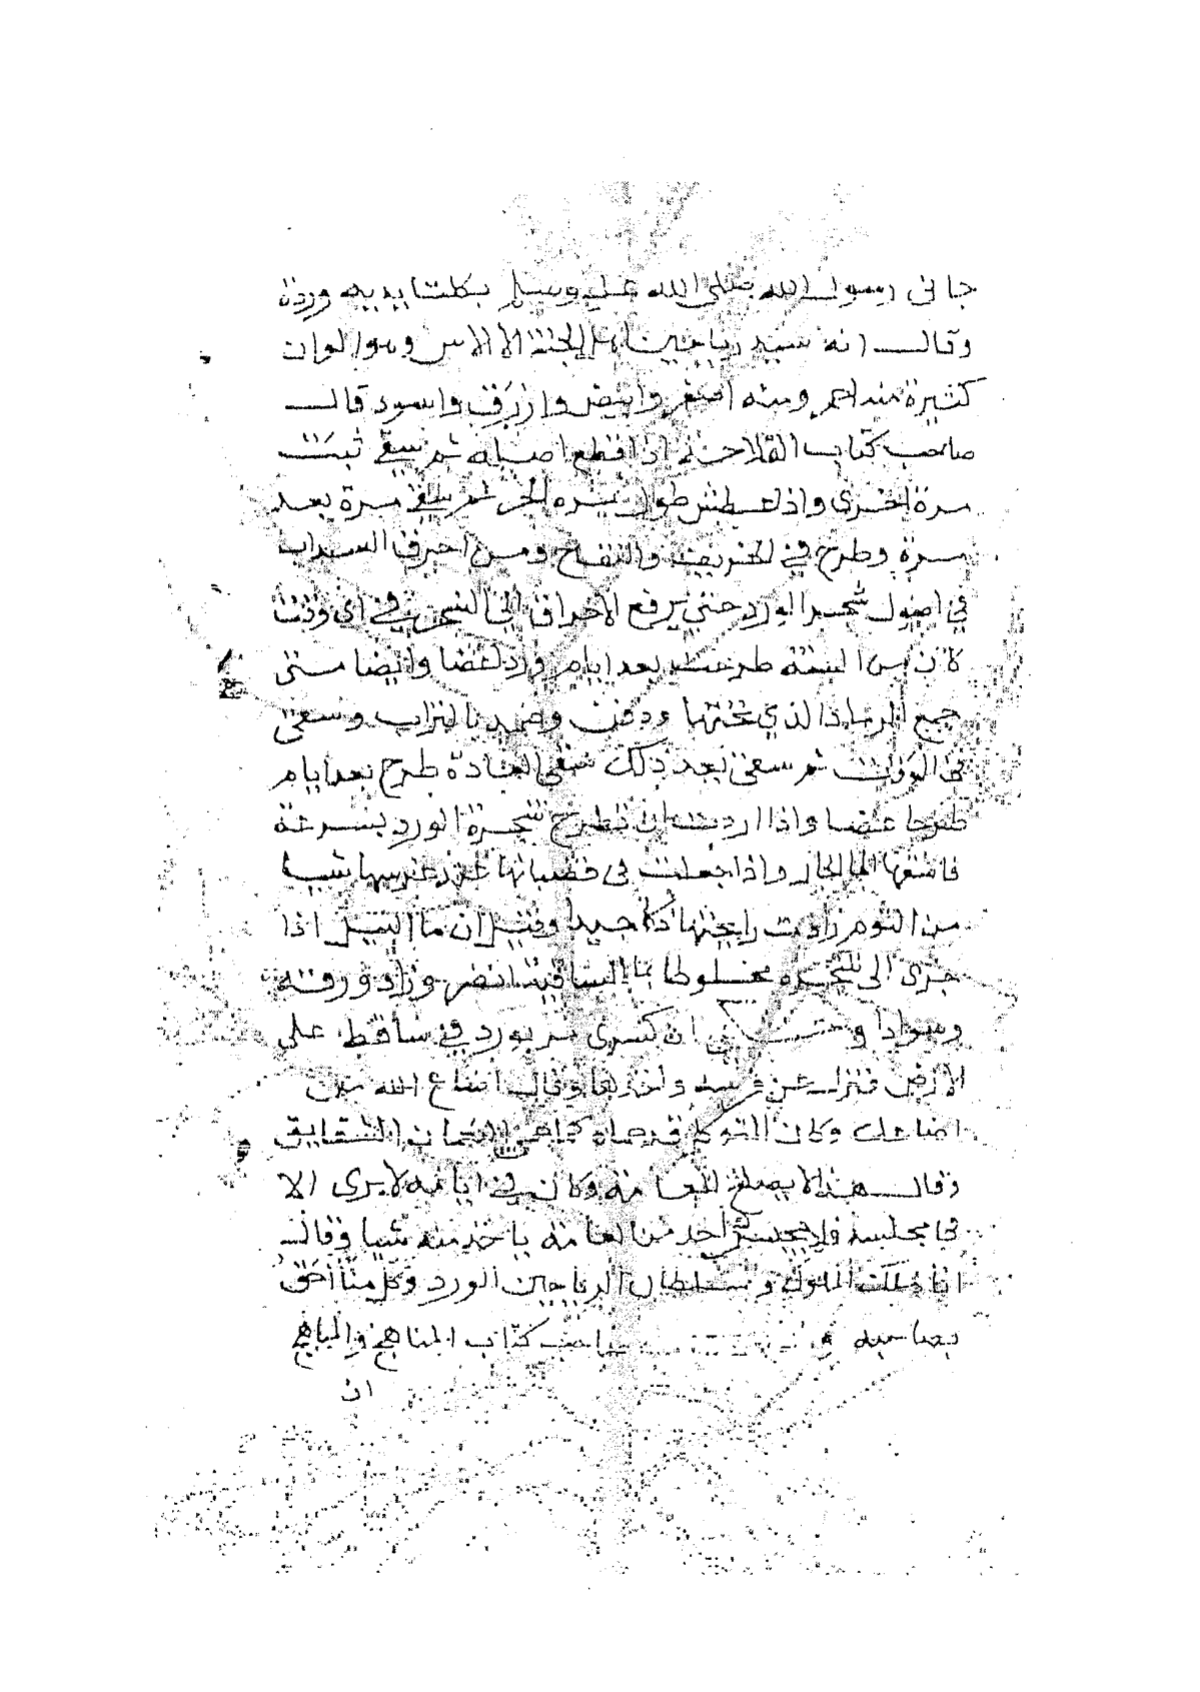 جانى رسول الله صلى الله عليه وسلم بكلتا يديه وردة
وقال انه سيد رياحين اهل الجنة الا الاس وهو الوان
كثيرة منه احمر ومنه اصفر وابيض وازرق واسود قال
صاحب كتاب الفلاحة اذا قطع اصله ثم سقى ثبتت
مرة اخرى واذا عطش طول شهره الحر ثم سقى مرة بعد
مرة وطرح في الخريف والتفاح ومن احرق السداب
في اصول شجر الورد حتى يرفع الاحراق الى الشجر في اى وقت
كان من السنة طرحت بعد ايام وردا غضا وايضا متى
جمع الرماد الذي تحتها ودفن بالتراب وسقى
فى الوقت ثم سقى بعد ذلك سقى العادة طرح بعد ايام
طرحا غضا واذا اردت ان تطرح شجرة الورد بسرعة
فاسقها الما الحار واذا جعلت فى قضبانها عند غرسها شيا
من الثوم زادت رايحتها ذكا جيدا وقيل ان ما النيل اذا
جرى الى شجره مخلوطا بما الساقية انضر وزاد ورقه
وسوادا ان كسرى مر بورد في ساقط على
الارض فنزل عن فرسه واخذها وقال اضاع الله من
اضاعك وكان المتوكل قد حماه كما حمى النعمان الشقايق
وقال هذا لا يصلح للعامة وكان في ايامه لا يرى الا
في مجلسه فلا يجسر احد من العامة ياخذ منه شيا وقال
انا ملك الملوك وسلطان الرياحين الورد وكل منا احق
بصاحبه صاحب كتاب المناهج والمباهج
ان